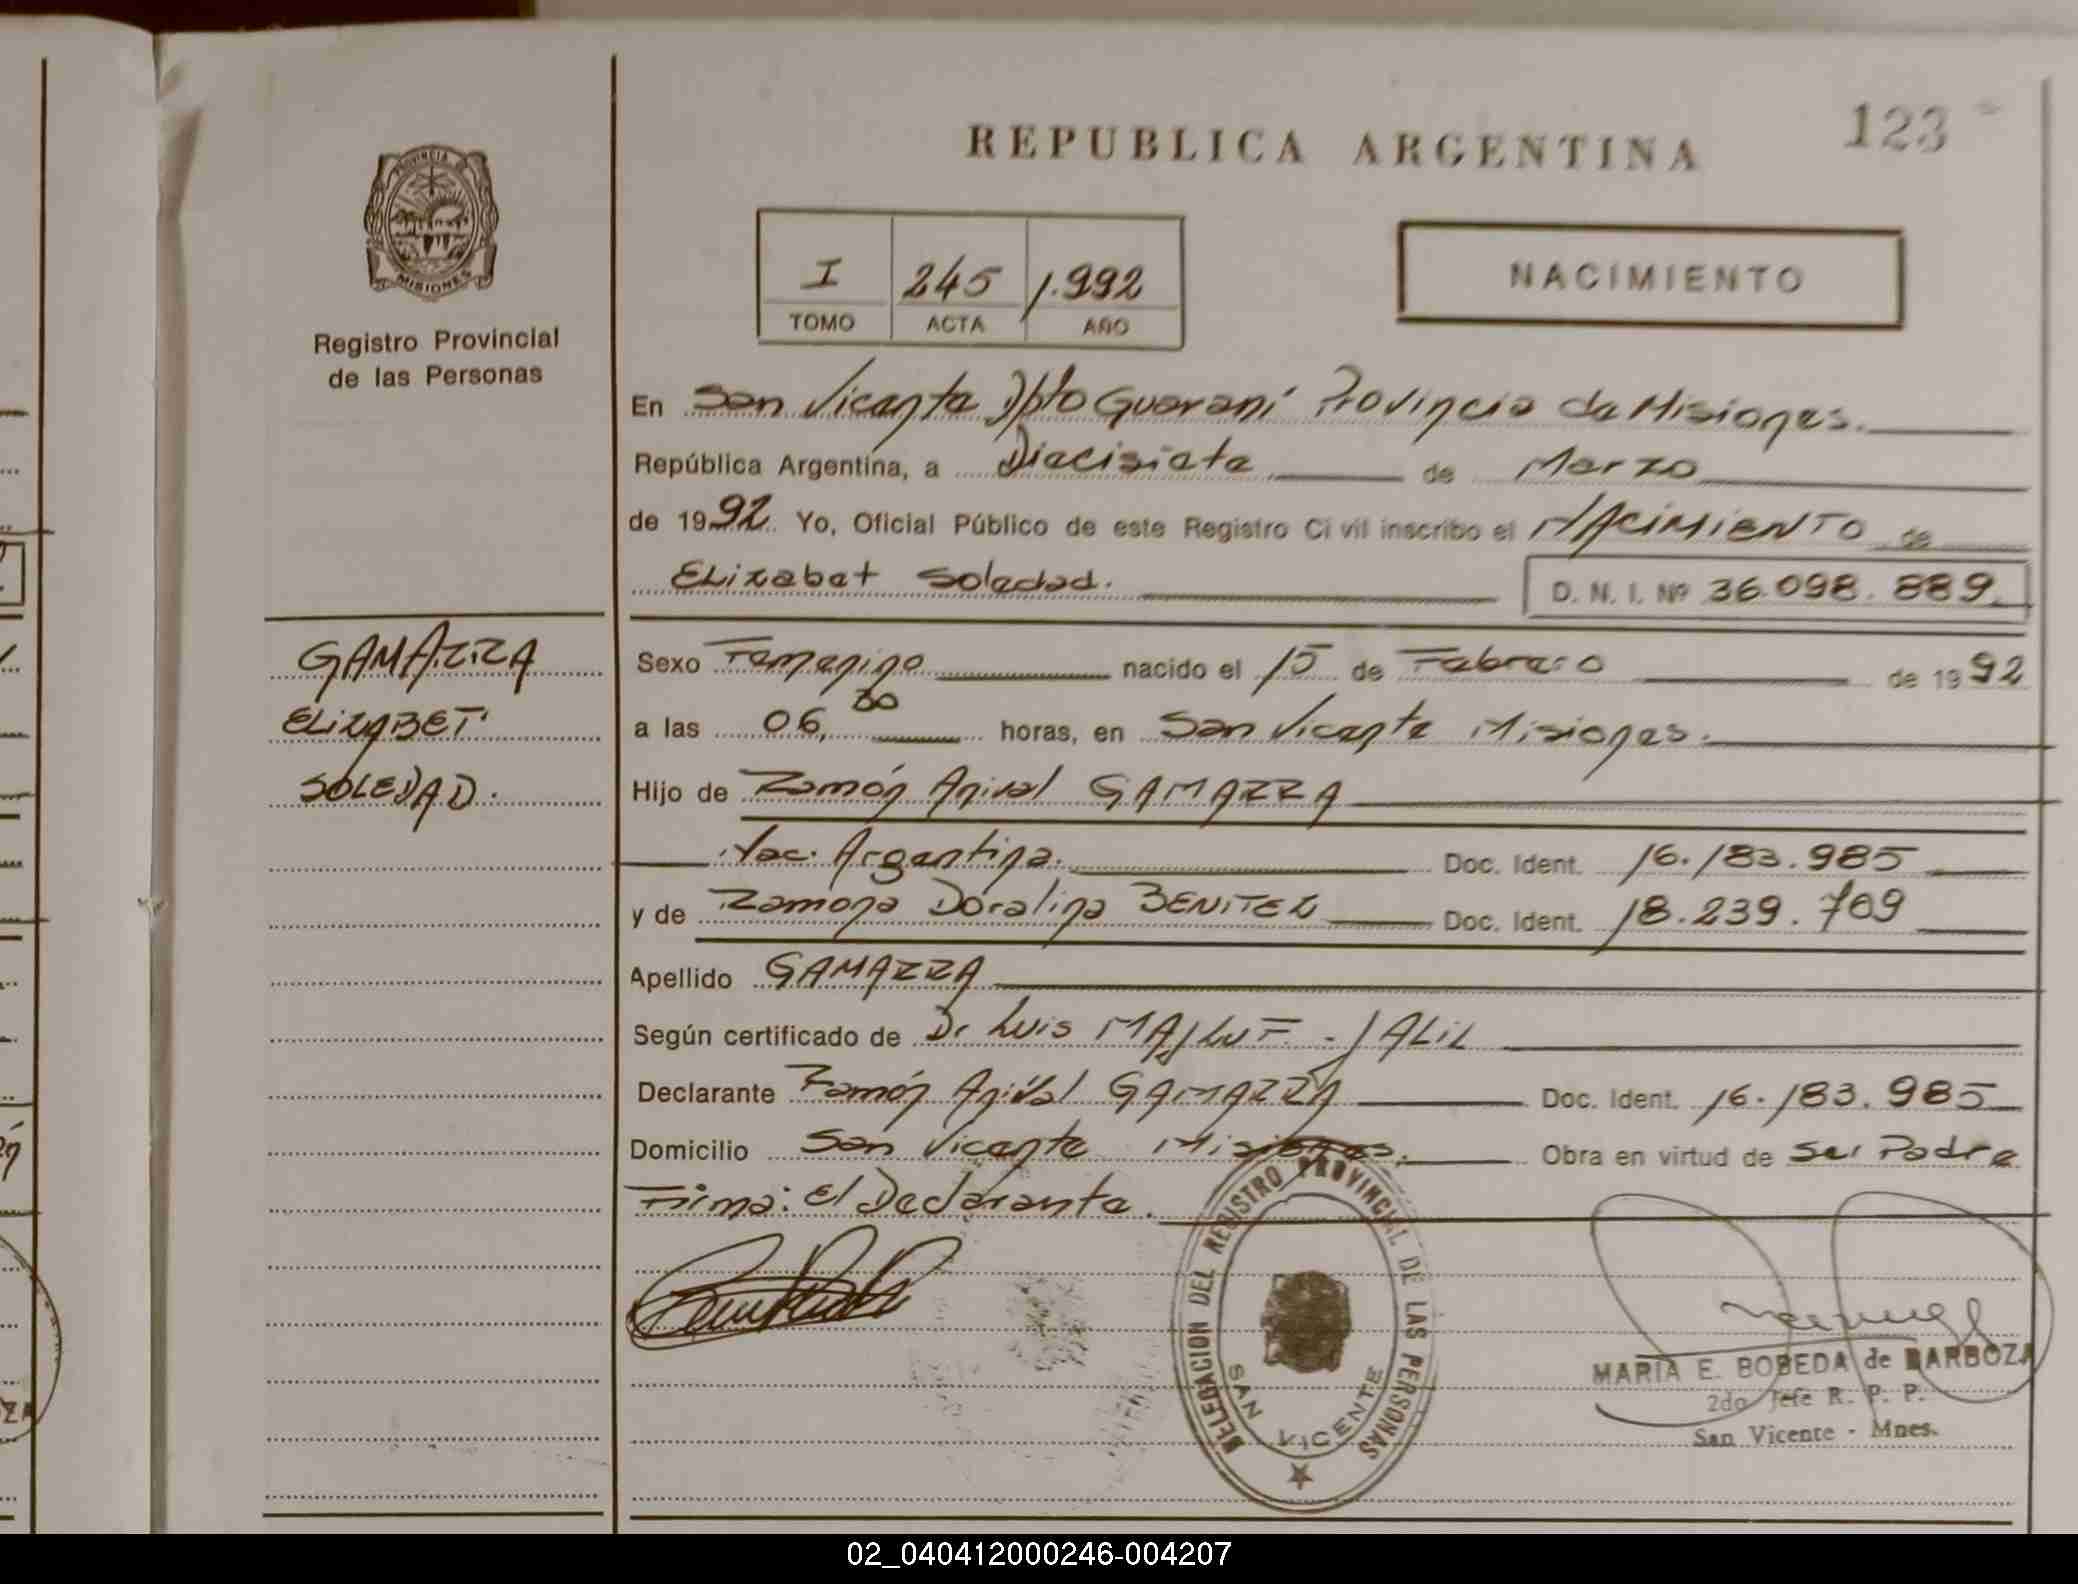 123
REPUBLICA ARGENTINA
PROVINCIA DE
MISIONES
Registro Provincial
de las Personas
I 245 1.992
TOMO ACTA AÑO
NACIMIENTO
En San Vicente Dpto Guaraní Provincia de Misiones.
República Argentina, a Diecisiete de Marzo
de 1992 Yo, Oficial Público de este Registro Civil inscribo el NACIMIENTO de
Elizabet Soledad.
D. N. I. Nº 36.098.889
GAMARRA
ELIZABET
SOLEDAD.
Sexo Femenino nacido el 15 de Febrero de 1992
a las 06,30 horas, en San Vicente Misiones.
Hijo de Ramón Anival GAMARRA
Nac. Argentina. Doc. Ident. 16.183.985
y de Ramona Doralina BENITEZ Doc. Ident. 18.239.709
Apellido GAMARRA
Según certificado de Dr Luis MAJLUF - JALIL
Declarante Ramón Anival GAMARRA Doc. Ident. 16.183.985
Domicilio San Vicente Misiones. Obra en virtud de Ser Padre
Firma: El Declarante.
DELEGACION DEL REGISTRO PROVINCIAL DE LAS PERSONAS
SAN VICENTE
MARIA E. BOBEDA de BARBOZA
2do Jefe R. P. P.
San Vicente - Mnes.
02_040412000246-004207